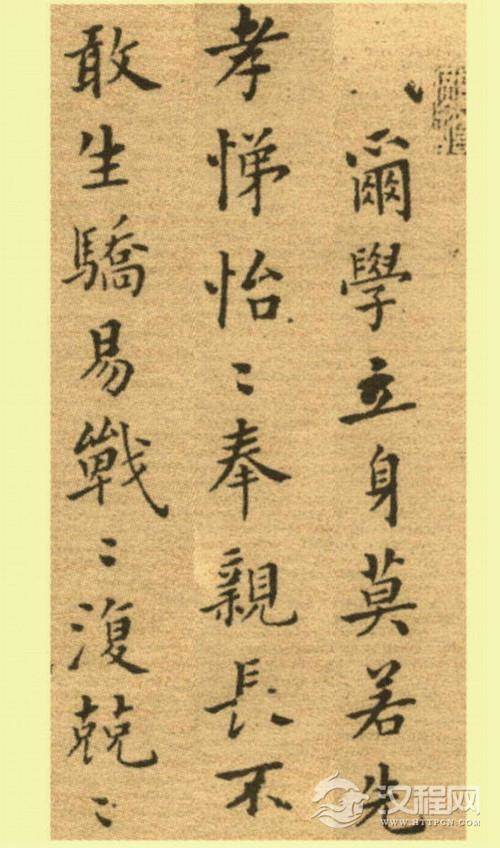 、爾學立身莫若先
孝悌怡〻奉親長不
敢生驕易戰〻復兢〻
汉程网
HTTPCN.COM